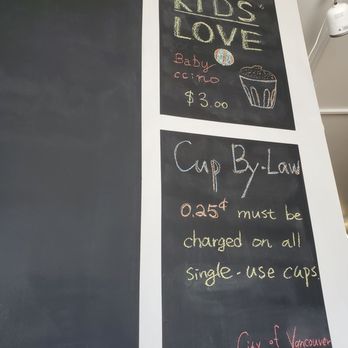 KIDS'
LOVE
Baby
ccino
$3.00
Cup By-Law
0.25¢ must be
charged on all
single-use cups.
City of Vancouver